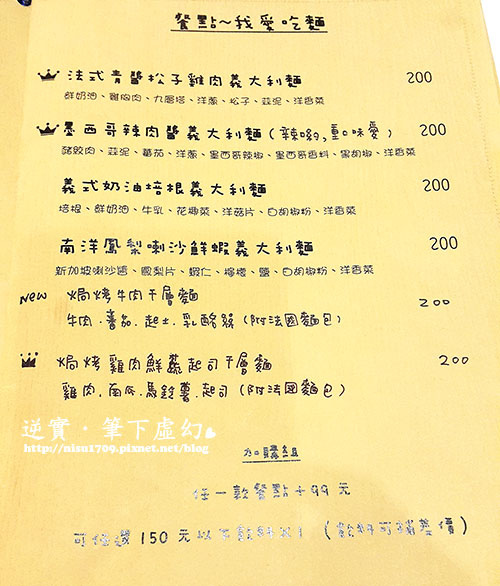 餐點~我愛吃麵
法式青醬松子雞肉義大利麵 200
鮮奶油、雞胸肉、九層塔、洋蔥、松子、蒜泥、洋香菜
墨西哥辣肉醬義大利麵(辣喲,重口味愛) 200
豬絞肉、蒜泥、蕃茄、洋蔥、墨西哥辣椒、墨西哥香料、黑胡椒、洋香菜
義式奶油培根義大利麵 200
培根、鮮奶油、牛乳、花椰菜、洋菇片、白胡椒粉、洋香菜
南洋鳳梨喇沙鮮蝦義大利麵 200
新加坡喇沙醬、鳳梨片、蝦仁、檸檬、鹽、白胡椒粉、洋香菜
NEW 焗烤牛肉千層麵 200
牛肉.蕃茄.起士.乳酪絲(附法國麵包)
焗烤雞肉鮮蔬起司千層麵 200
雞肉.南瓜.馬鈴薯.起司(附法國麵包)
逆實·筆下虛幻
http://nisu1709.pixnet.net/blog
加購組
任一款餐點+99元
可任選150元以下飲料X1(飲料可補差價)